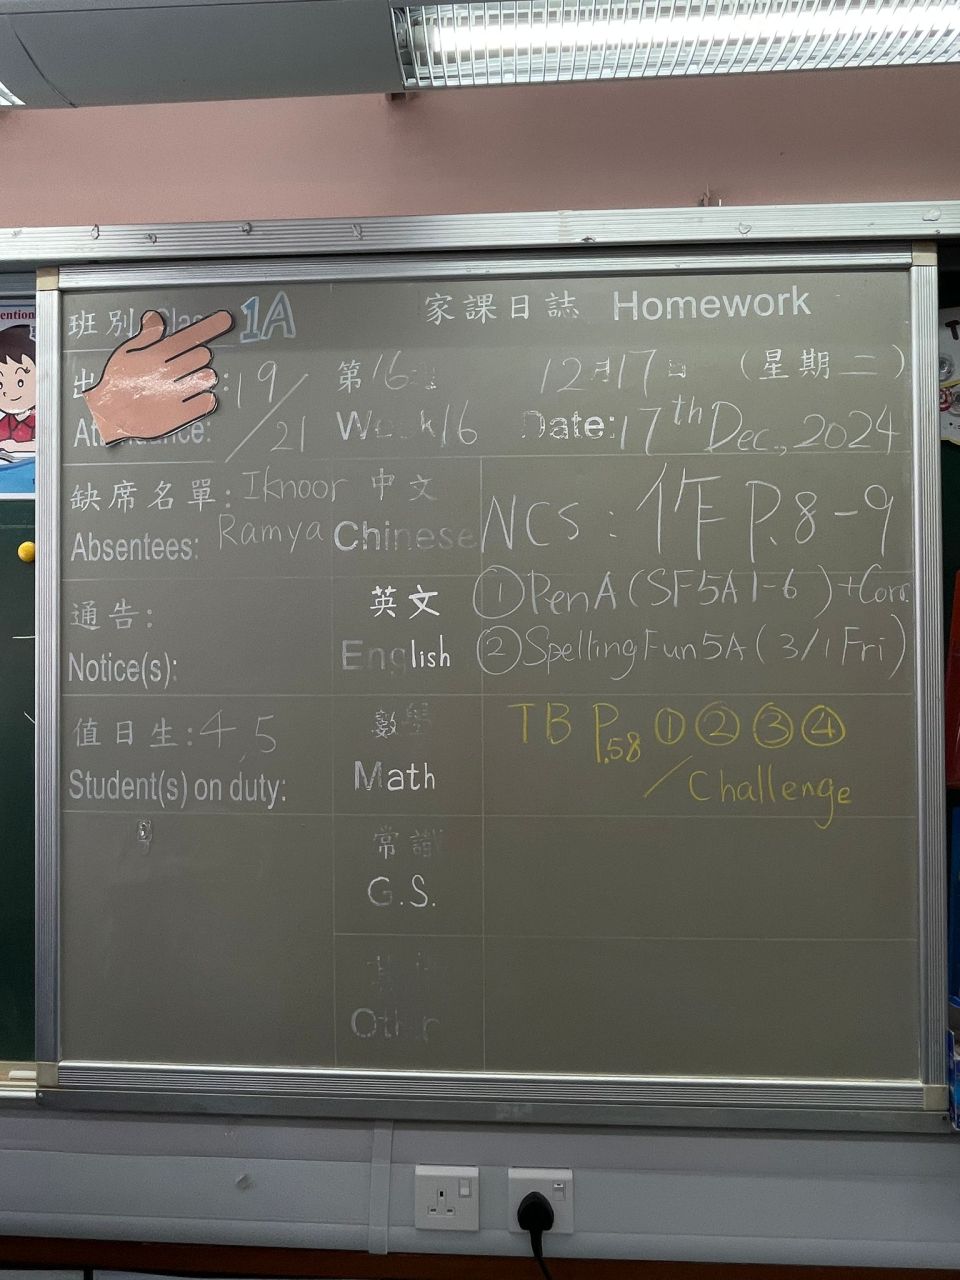 班別 Class 1A 家課日誌 Homework
出 : 19/21 第16週 12月17日 (星期二)
Attendance: Week 16 Date: 17th Dec., 2024
缺席名單: Iknoor
Absentees: Ramya
通告:
Notice(s):
值日生: 4, 5
Student(s) on duty:
中文
Chinese
NCS: 作 P.8-9
英文
English
① PenA (SF5A 1-6) + Corr.
② Spelling Fun 5A (3/1 Fri)
數學
Math
TB P.58 ① ② ③ ④
/ Challenge
常識
G.S.
其他
Other